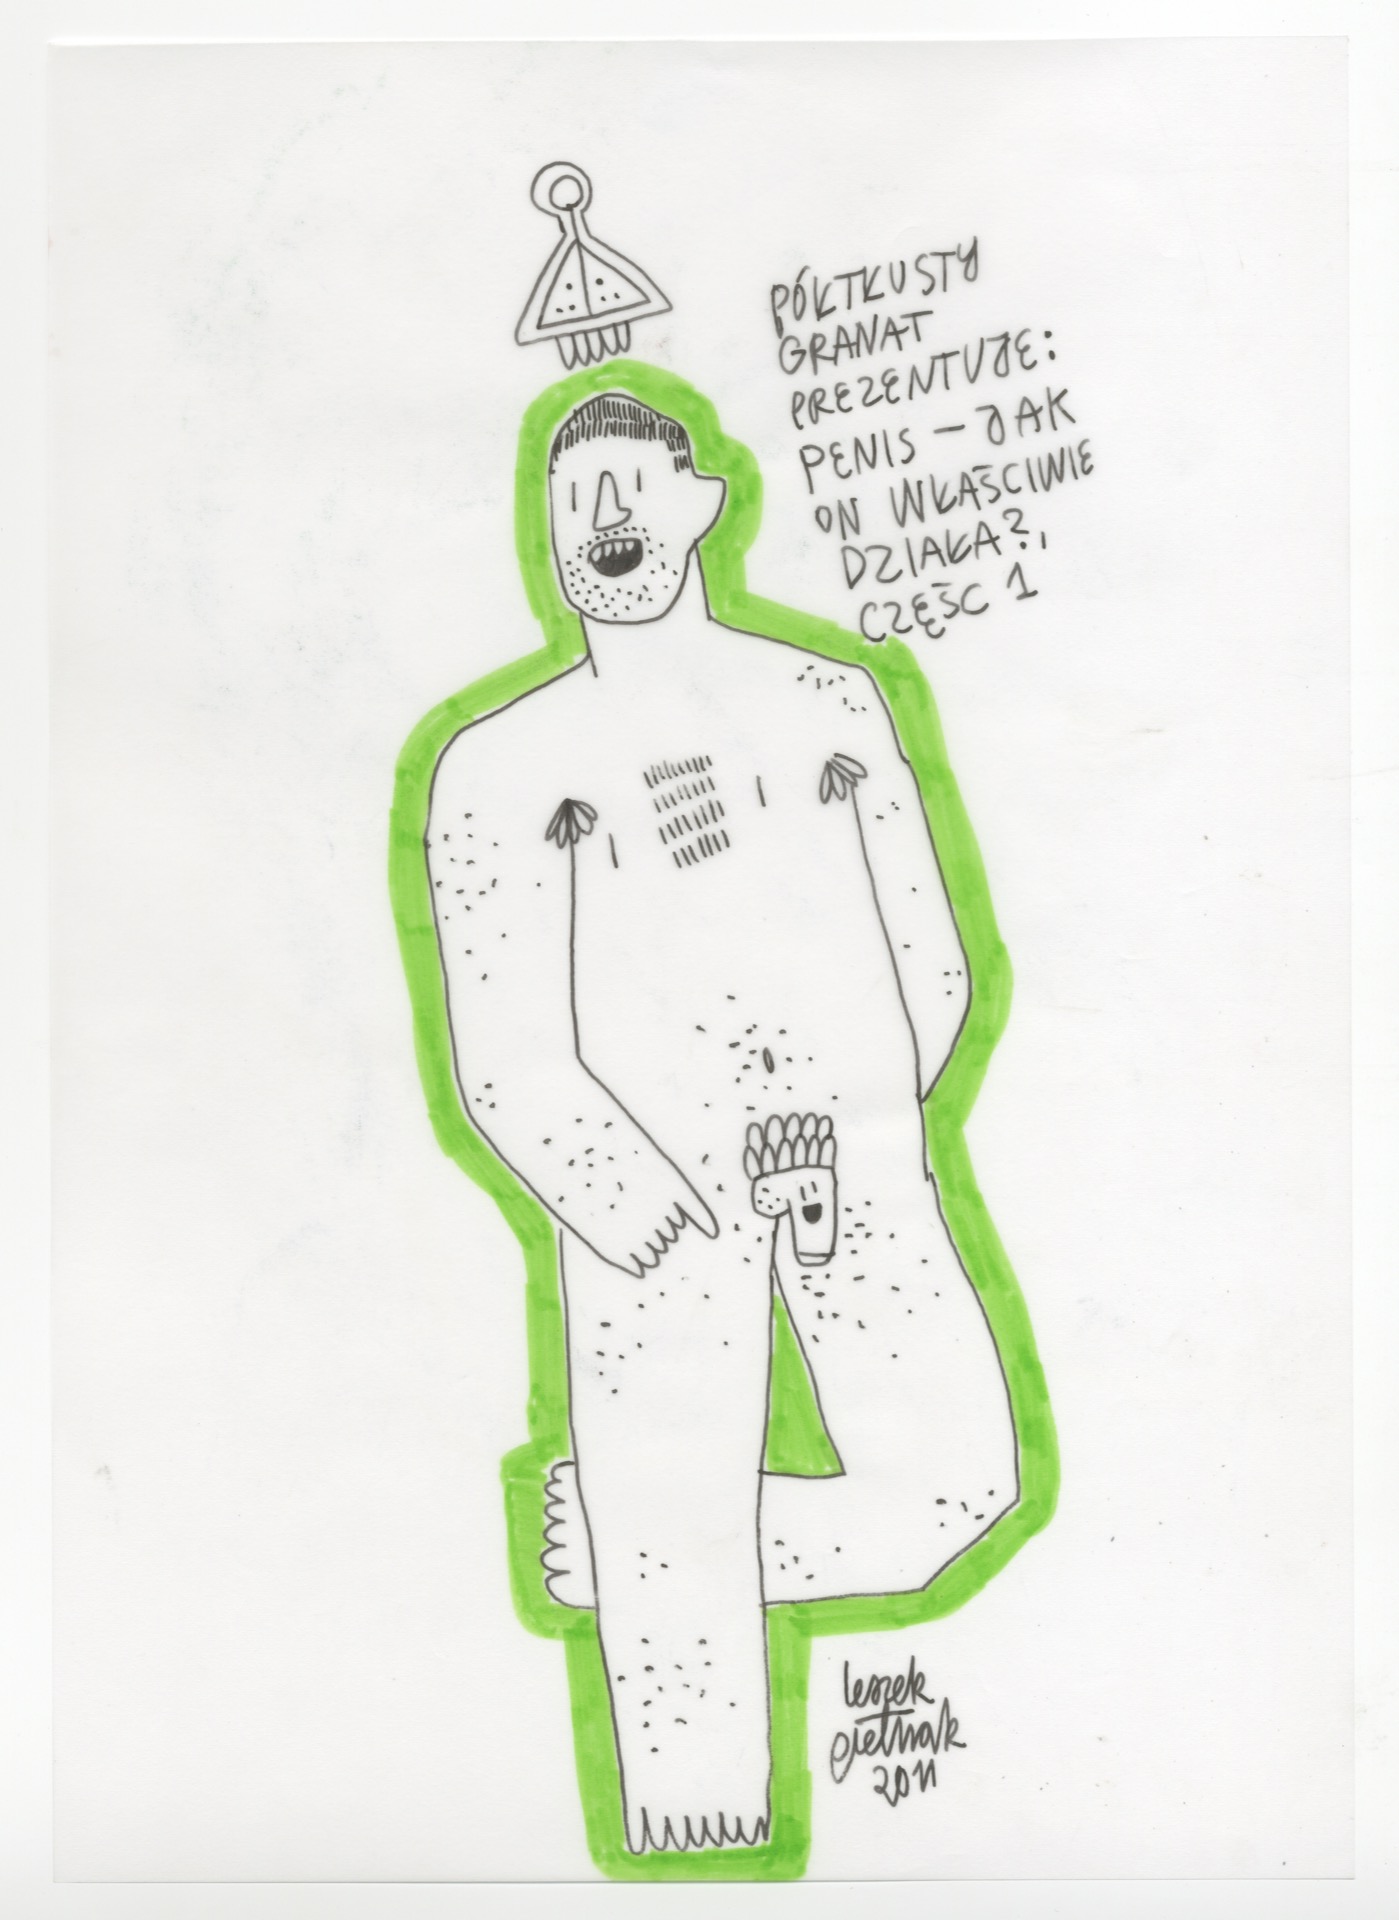 PÓŁTŁUSTY
GRANAT
PREZENTUJE:
PENIS – JAK
ON WŁAŚCIWIE
DZIAŁA?,
CZĘŚĆ 1
leszek
pietrzak
2011